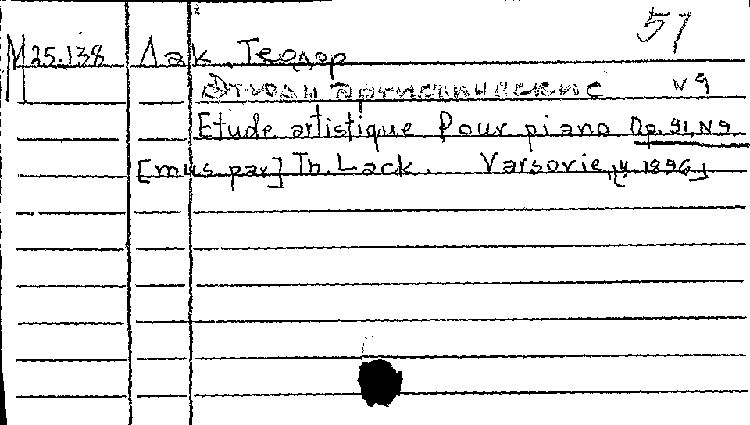 57
М 25.138 Лак, Теодор
Этюды артистические N9
Etude artistique Pour piano Op. 91, N9
[mus. par] Th. Lack. Varsovie, 1896